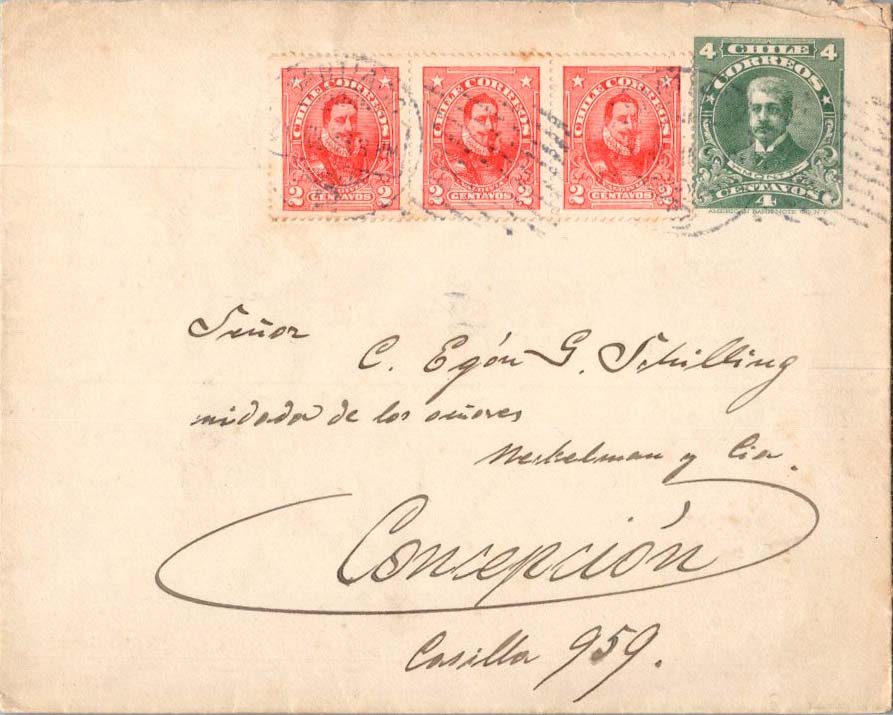 CHILE CORREOS
2 CENTAVOS 2
CHILE CORREOS
2 CENTAVOS 2
CHILE CORREOS
2 CENTAVOS 2
4 CHILE 4
CORREOS
CENTAVOS
4
AMERICAN BANK NOTE CO. N.Y.
Señor
C. Egón G. Schilling
de los señores
y Cia.
Concepción
Casilla 959.